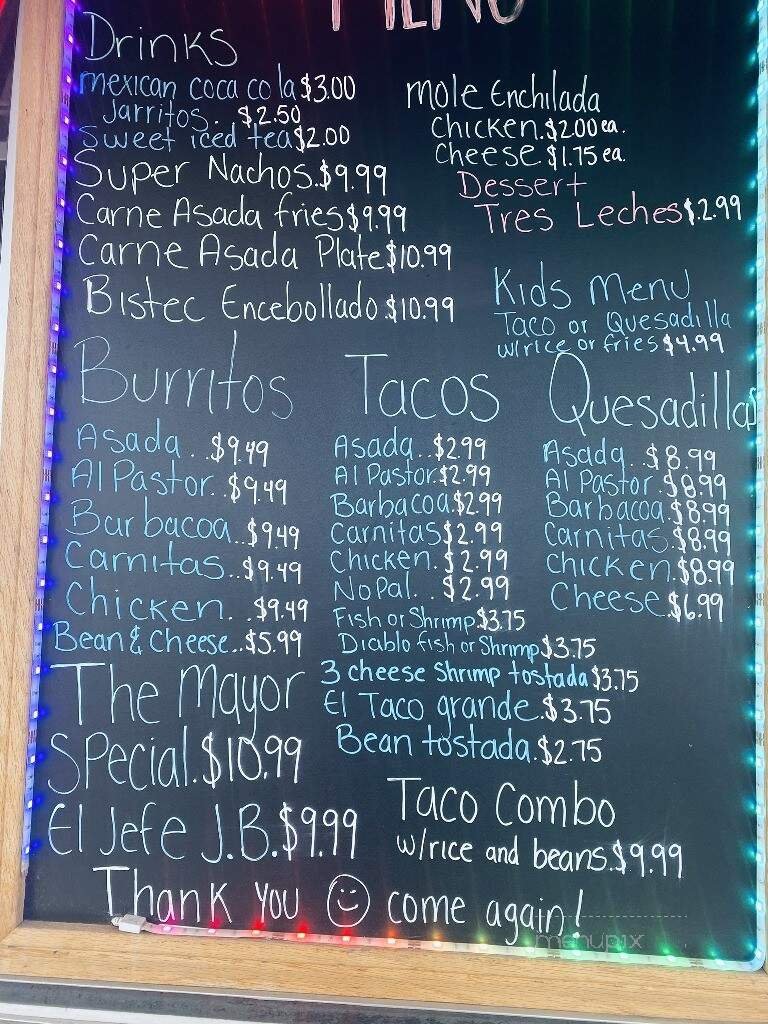 MENU
Drinks
mexican coca cola $3.00
Jarritos. $2.50
Sweet iced tea $2.00
Super Nachos.$9.99
Carne Asada fries $9.99
Carne Asada Plate $10.99
Bistec Encebollado $10.99
mole Enchilada
Chicken.$2.00 ea.
Cheese $1.75 ea.
Dessert
Tres Leches $2.99
Kids Menu
Taco or Quesadilla
w/rice or fries $4.99
Burritos
Asada...$9.49
Al Pastor..$9.49
Barbacoa..$9.49
Carnitas..$9.49
Chicken...$9.49
Bean & Cheese..$5.99
Tacos
Asada..$2.99
Al Pastor.$2.99
Barbacoa.$2.99
Carnitas $2.99
Chicken. $2.99
Nopal.. $2.99
Fish or Shrimp.$3.75
Diablo fish or Shrimp $3.75
3 cheese Shrimp tostada $3.75
El Taco grande.$3.75
Bean tostada.$2.75
Quesadillas
Asada..$8.99
Al Pastor.$8.99
Barbacoa.$8.99
Carnitas.$8.99
Chicken.$8.99
Cheese.$6.99
The Mayor
Special.$10.99
El Jefe J.B.$9.99
Taco Combo
w/rice and beans.$9.99
Thank You come again!
menupix